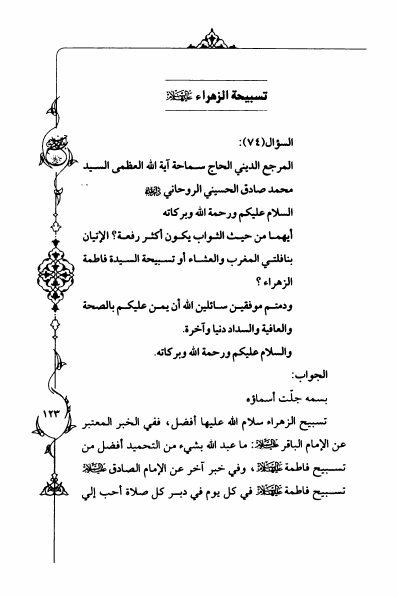 تسبيحة الزهراء عليها السلام
السؤال(٧٤):
المرجع الديني الحاج سماحة آية الله العظمى السيد
محمد صادق الحسيني الروحاني
السلام عليكم ورحمة الله وبركاته
أيهما من حيث الثواب يكون أكثر رفعة؟ الإتيان
بنافلتي المغرب والعشاء أو تسبيحة السيدة فاطمة
الزهراء ؟
ودمتم موفقين سائلين الله أن يمن عليكم بالصحة
والعافية والسداد دنيا وآخرة.
والسلام عليكم ورحمة الله وبركاته.
الجواب:
بسمه جلّت أسماؤه
تسبيح الزهراء سلام الله عليها أفضل، ففي الخبر المعتبر
عن الإمام الباقر عليه السلام: ما عبد الله بشيء من التحميد أفضل من
تسبيح فاطمة عليها السلام، وفي خبر آخر عن الإمام الصادق عليه السلام
تسبيح فاطمة عليها السلام في كل يوم في دبر كل صلاة أحب إلي
١٢٣